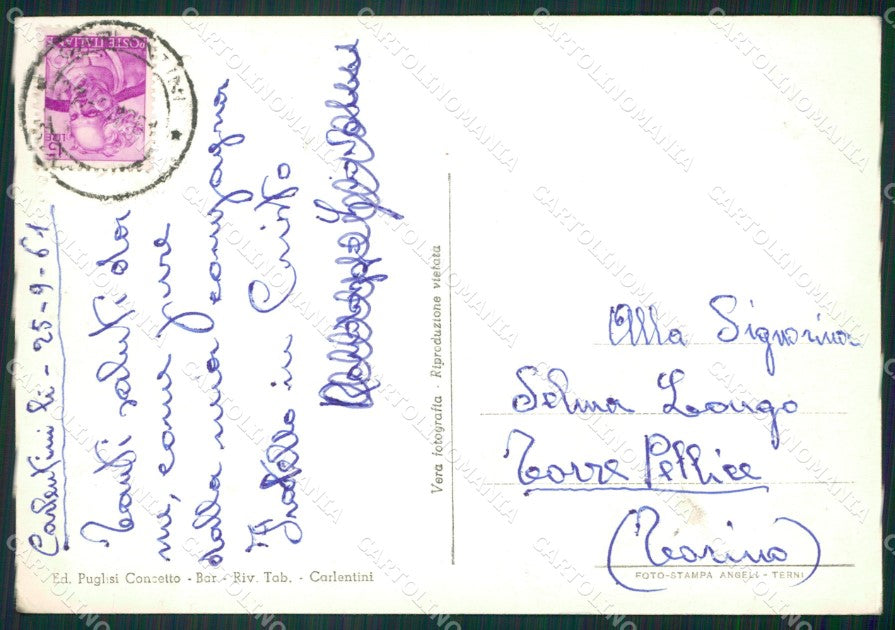 POSTE ITALIANE
LIRE
Carlentini li - 25-9-61
Tanti saluti da
me, come pure
dalla mia compagna
Fratello in Cristo
Vera fotografia - Riproduzione vietata
Alla Signorina
Selma Longo
Torre Pellice
(Torino)
Ed. Puglisi Concetto - Bar - Riv. Tab. - Carlentini
FOTO-STAMPA ANGELI - TERNI
CARTOLINOMANIA